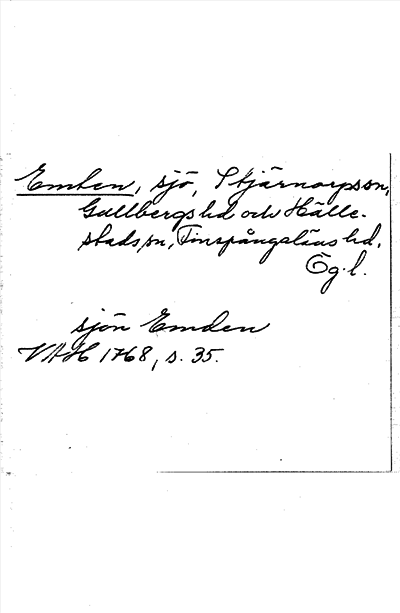 Emden, sjö, Stjärnorpssn,
Gullbergs hd och Hälle-
stads sn, Finspångaläns hd,
Ög. l.
sjön Emden
VAH 1768, s. 35.